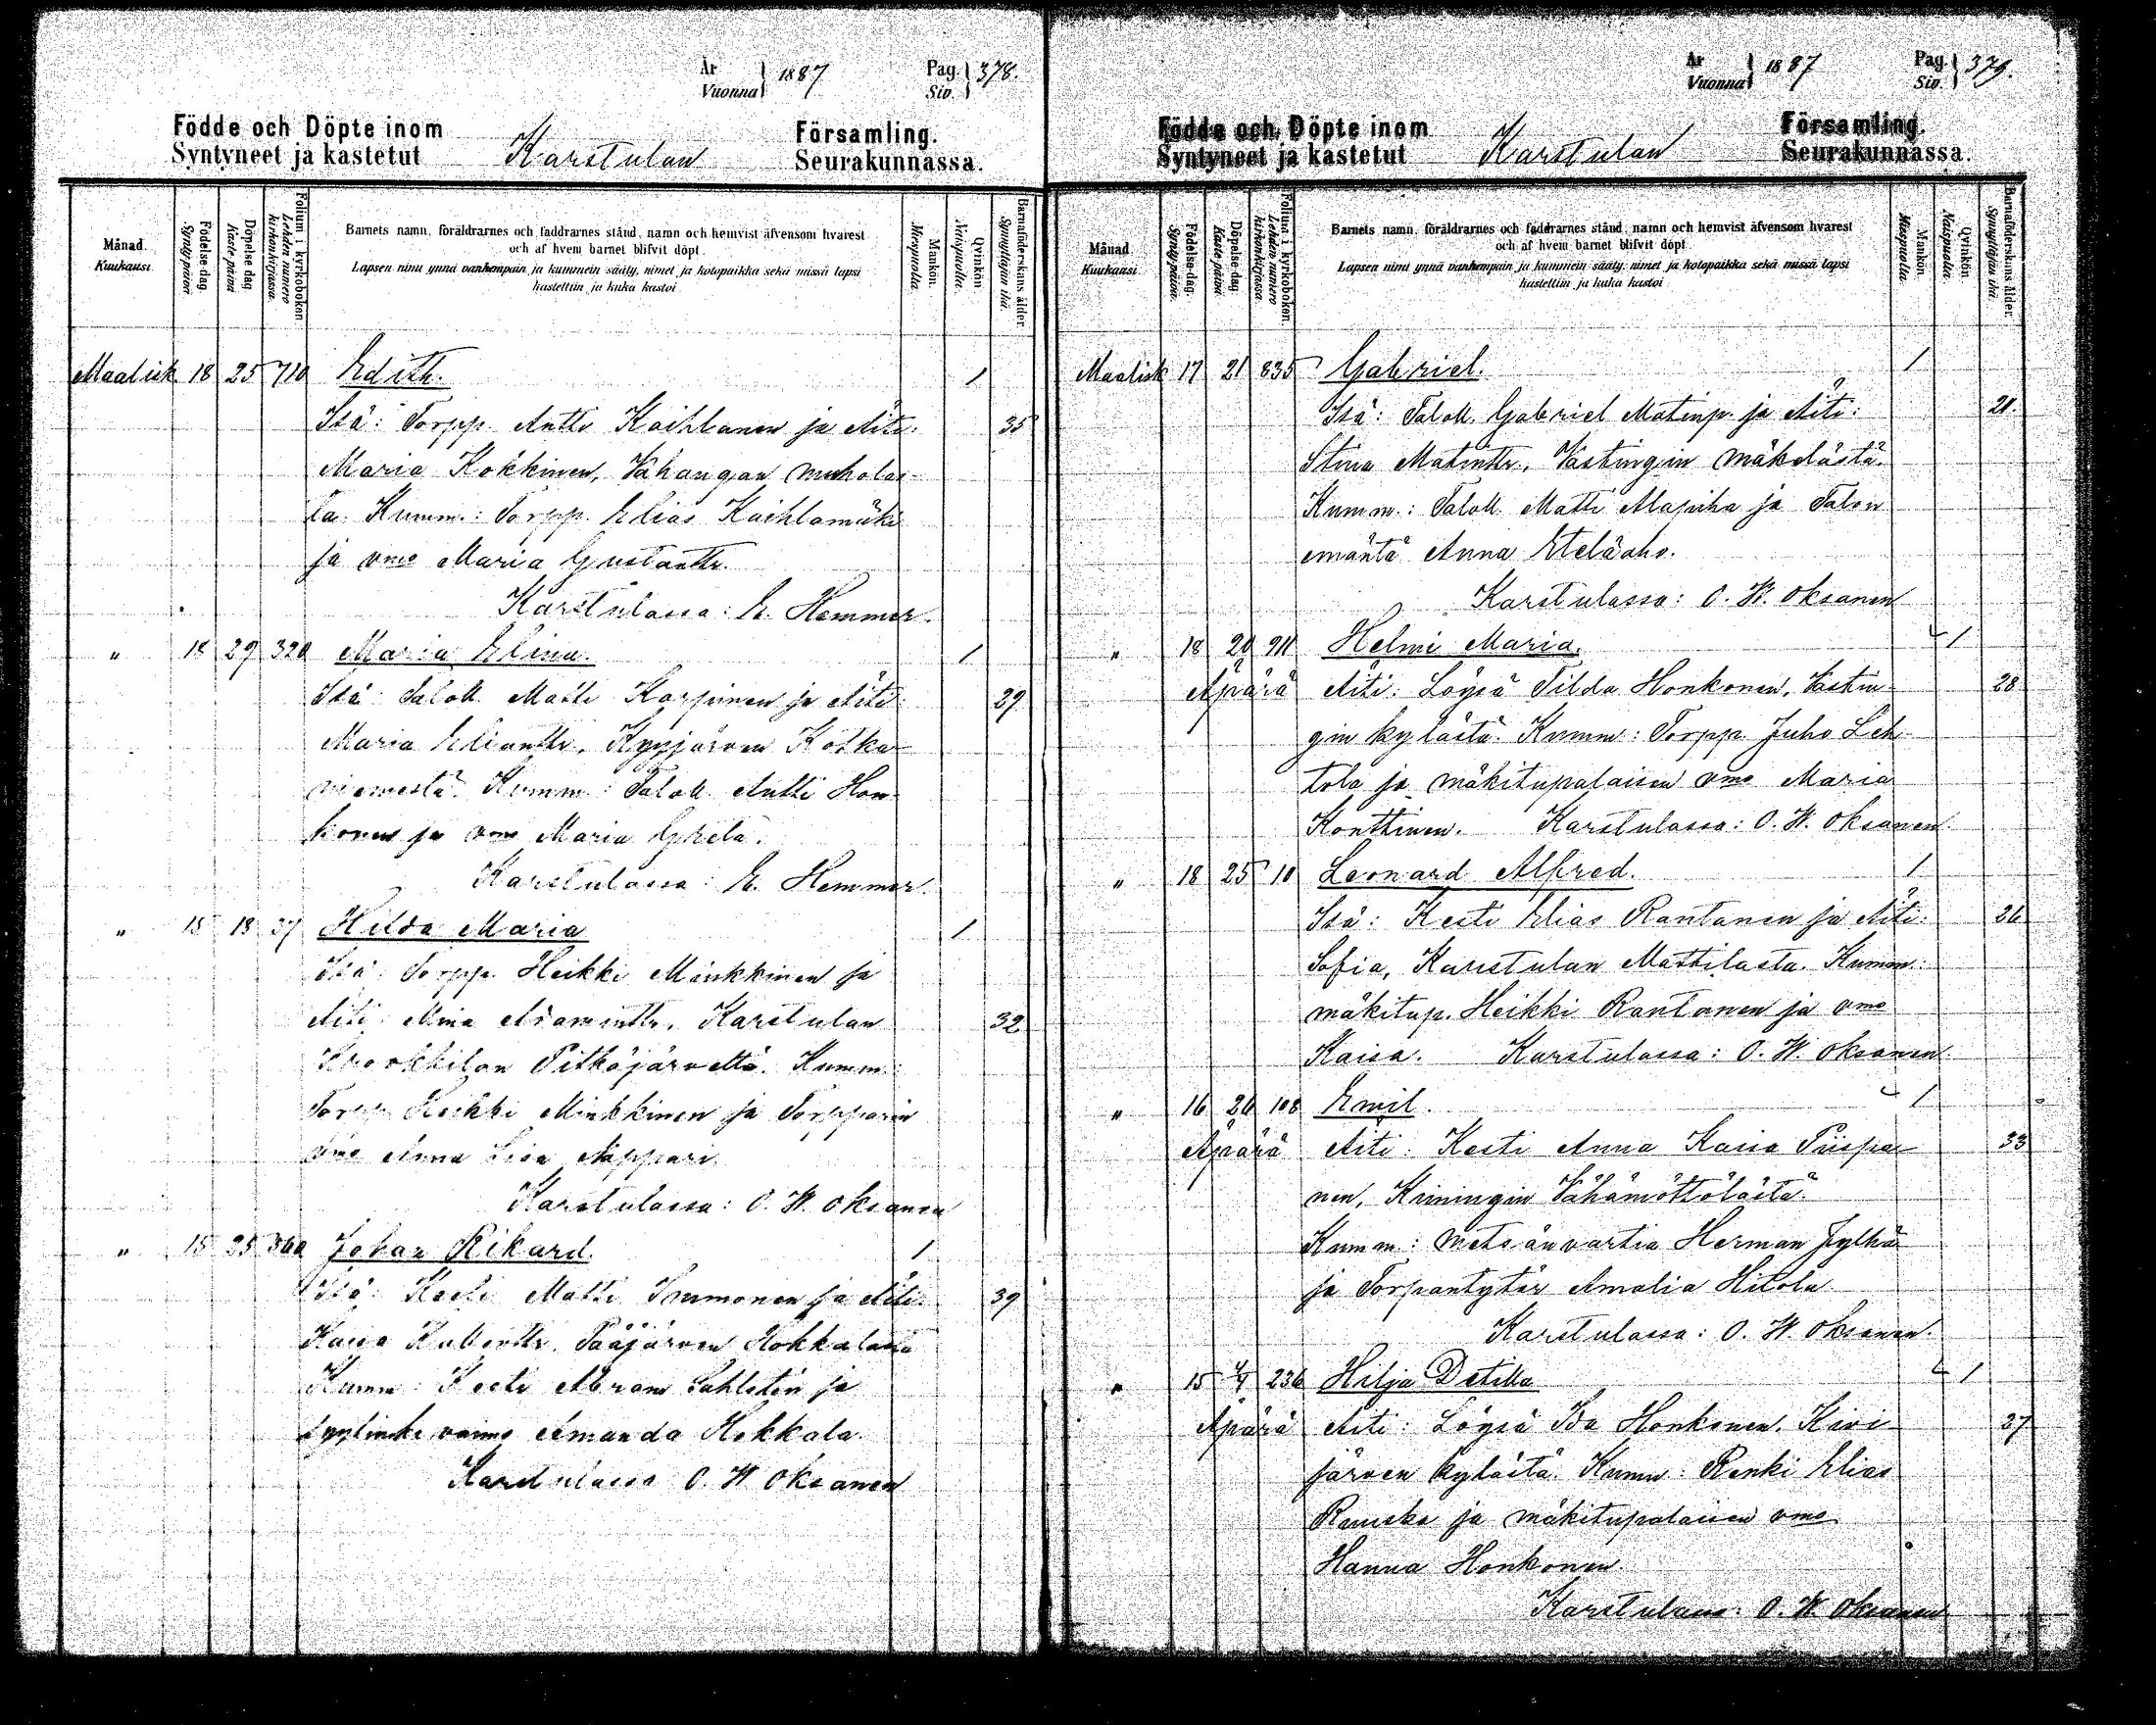 År
Vuonna } 1887
Pag.
Siv. } 378.
Födde och Döpte inom
Syntyneet ja kastetut
Karstulan
Församling.
Seurakunnassa.
Månad.
Kuukausi.
Födelse-dag.
Synty-päivä.
Döpelse-dag.
Kaste-päivä
Folium i kyrkoboken
Lehden numero kirkonkirjassa.
Barnets namn, föräldrarnes och faddrarnes stånd, namn och hemvist äfvensom hvarest
och af hvem barnet blifvit döpt.
Lapsen nimi ynnä vanhempain ja kummein sääty, nimet ja kotopaikka sekä missä lapsi
kastettiin ja kuka kastoi
Mankön.
Miespuolia.
Qvinkön
Naispuolia.
Barnaföderskans ålder.
Synnyttäjän ikä.
Maalisk. 18 25 710 Edith. 1
Isä: Torpp. Antti Kaihlanen ja Äiti: 35
Maria Kokkinen, Vahangan
ta. Kumm.: Torpp. Elias Kaihlamäki
ja vmo Maria Gustantr.
Karstulassa: E. Hemmer.
" 18 29 320 Maria Elina. 1
Isä: Talok. Matti Karpinen ja Äiti: 29
Maria Eliantr., Kyyjärven Kotka-
niemestä. Kumm.: Talok. Antti Hon-
konen ja vmo Maria Greta.
Karstulassa: E. Hemmer.
" 15 18 37 Hilda Maria 1
Isä: Torpp. Heikki Minkkinen ja
Äiti: Miina Adamintr., Karstulan 32
Krookkilan Pitkäjärveltä. Kumm.:
Torpp. Heikki Minkkinen ja Torpparin
vmo Anna Lisa
Karstulassa: O. W. Oksanen
" 15 25 360 Johan Rikard. 1
Isä: Kesti Matti ja Äiti: 39
Kaisa Pääjärven
Kumm.: Kesti Abram Sahlstén ja
vaimo Amanda Hokkala.
Karstulassa O. W. Oksanen
År
Vuonna } 1887
Pag.
Siv. } 379.
Födde och Döpte inom
Syntyneet ja kastetut
Karstulan
Församling.
Seurakunnassa.
Månad
Kuukausi
Födelse-dag.
Synty-päivä.
Döpelse-dag
Kaste-päivä
Folium i kyrkoboken.
Lehden numero kirkonkirjassa.
Barnets namn, föräldrarnes och faddrarnes stånd, namn och hemvist äfvensom hvarest
och af hvem barnet blifvit döpt
Lapsen nimi ynnä vanhempain ja kummein sääty, nimet ja kotopaikka sekä missä lapsi
kastettiin ja kuka kastoi
Mankön.
Miespuolia.
Qvinkön
Naispuolia.
Barnaföderskans ålder.
Synnyttäjän ikä.
Maalisk 17 21 835 Gabriel. 1
Isä: Talok. Gabriel Matinp. ja Äiti: 21.
Stina Matintr., Vastingin mäkelästä.
Kumm.: Talok. Matti Alapiha ja Talon
emäntä Anna Eteläaho.
Karstulassa: O. W. Oksanen
" 18 20 911 Helmi Maria. 1
Äpärä Äiti: Löysä Tilda Honkonen, Vastin- 28
gin kylästä. Kumm.: Torpp. Juho Leh-
tola ja mäkitupalaisen vmo Maria
Konttinen. Karstulassa: O. W. Oksanen.
" 18 25 10 Leonard Alfred. 1
Isä: Kesti Elias Rantanen ja Äiti: 26
Sofia, Karstulan Mattilasta. Kumm.:
mäkitup. Heikki Rantanen ja vmo
Kaisa. Karstulassa: O. W. Oksanen.
" 16 26 108 Emil. 1
Äpärä Äiti: Kesti Anna Kaisa Piispa- 33
nen, Kiminginin Vähämöttölästä.
Kumm.: Metsänvartia Herman Jylhä
ja Torpantytär Amalia Hitola.
Karstulassa: O. W. Oksanen.
" 15 1/4 236 Hilja Detilla 1
Äpärä Äiti: Löysä Ida Honkonen, Kivi- 27
järven kylästä. Kumm.: Renki Elias
Ramska ja mäkitupalaisen vmo
Hanna Honkonen.
Karstulassa: O. W. Oksanen